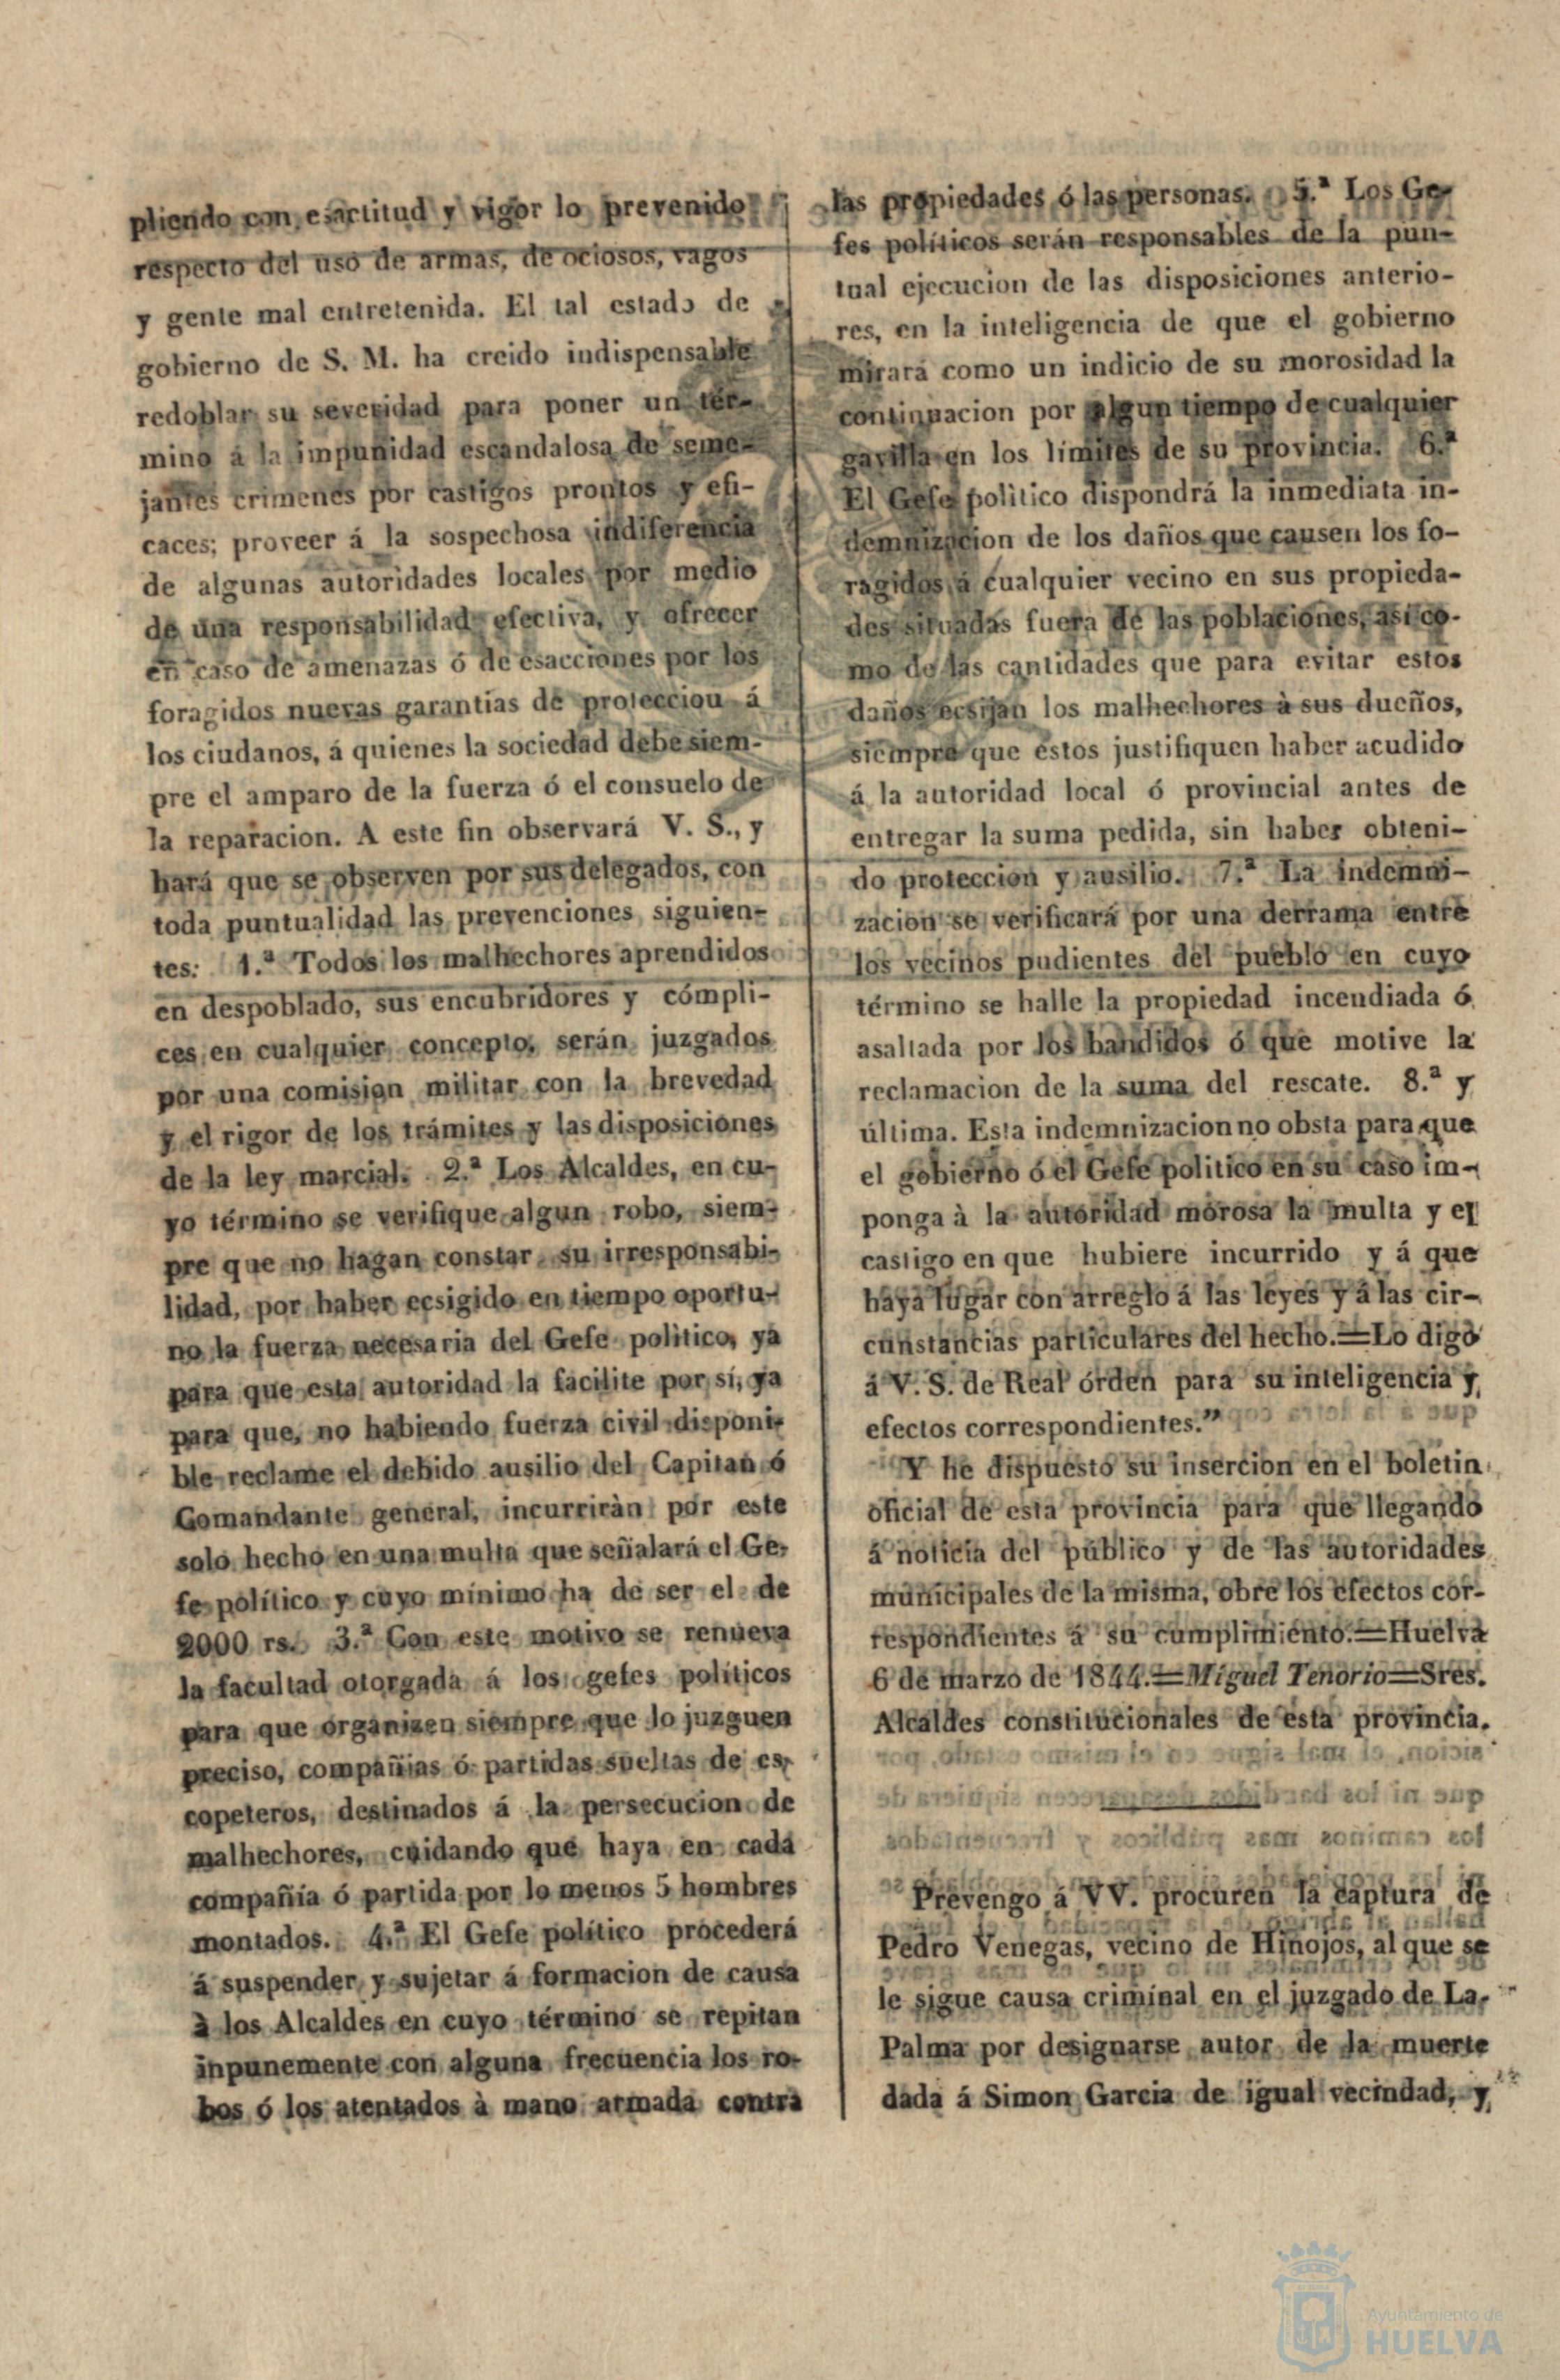 pliendo con esactitud y vigor lo prevenido
respecto del uso de armas, de ociosos, vagos
y gente mal entretenida. El tal estado de
gobierno de S. M. ha creido indispensable
redoblar su severidad para poner un tér-
mino á la impunidad escandalosa de seme-
jantes crimenes por castigos prontos y efi-
caces; proveer á la sospechosa indiferencia
de algunas autoridades locales por medio
de una responsabilidad efectiva, y ofrecer
en caso de amenazas ó de esacciones por los
foragidos nuevas garantias de protecciou á
los ciudanos, á quienes la sociedad debe siem-
pre el amparo de la fuerza ó el consuelo de
la reparacion. A este fin observará V. S., y
hará que se observen por sus delegados, con
toda puntualidad las prevenciones siguien-
tes: 1.ª Todos los malhechores aprendidos
en despoblado, sus encubridores y cómpli-
ces en cualquier concepto, serán juzgados
por una comision militar con la brevedad
y el rigor de los trámites y las disposiciones
de la ley marcial. 2.ª Los Alcaldes, en cu-
yo término se verifique algun robo, siem-
pre que no hagan constar su irresponsabi-
lidad, por haber ecsigido en tiempo oportu-
no la fuerza necesaria del Gefe político, ya
para que esta autoridad la facilite por sí, ya
para que, no habiendo fuerza civil disponi-
ble reclame el debido ausilio del Capitan ó
Comandante general, incurriràn por este
solo hecho en una multa que señalará el Ge-
fe político y cuyo mínimo ha de ser el de
2000 rs. 3.ª Con este motivo se renueva
la facultad otorgada á los gefes políticos
para que organizen siempre que lo juzguen
preciso, compañias ó partidas sueltas de es-
copeteros, destinados á la persecucion de
malhechores, cuidando que haya en cada
compañía ó partida por lo menos 5 hombres
montados. 4.ª El Gefe político procederá
á suspender y sujetar á formacion de causa
à los Alcaldes en cuyo término se repitan
inpunemente con alguna frecuencia los ro-
bos ó los atentados à mano armada contra
las propiedades ó las personas. 5.ª Los Ge-
fes políticos serán responsables de la pun-
tual ejecucion de las disposiciones anterio-
res, en la inteligencia de que el gobierno
mirará como un indicio de su morosidad la
continuacion por algun tiempo de cualquier
gavilla en los límites de su provincia. 6.ª
El Gefe político dispondrá la inmediata in-
demnizacion de los daños que causen los fo-
ragidos á cualquier vecino en sus propieda-
des situadas fuera de las poblaciones, asi co-
mo de las cantidades que para evitar estos
daños ecsijan los malhechores à sus dueños,
siempre que éstos justifiquen haber acudido
á la autoridad local ó provincial antes de
entregar la suma pedida, sin haber obteni-
do proteccion y ausilio. 7.ª La indemni-
zacion se verificará por una derrama entre
los vecinos pudientes del pueblo en cuyo
término se halle la propiedad incendiada ó
asaltada por los bandidos ó que motive la
reclamacion de la suma del rescate. 8.ª y
última. Esta indemnizacion no obsta para que
el gobierno ó el Gefe politico en su caso im-
ponga à la autoridad morosa la multa y el
castigo en que hubiere incurrido y á que
haya lugar con arreglo á las leyes y á las cir-
cunstancias particulares del hecho.=Lo digo
á V. S. de Real órden para su inteligencia y
efectos correspondientes."
Y he dispuesto su insercion en el boletin
oficial de esta provincia para que llegando
á noticia del público y de las autoridades
municipales de la misma, obre los efectos cor-
respondientes á su cumplimiento.=Huelva
6 de marzo de 1844.=Miguel Tenorio=Sres.
Alcaldes constitucionales de esta provincia.
Prevengo á VV. procuren la captura de
Pedro Venegas, vecino de Hinojos, al que se
le sigue causa criminal en el juzgado de La-
Palma por designarse autor de la muerte
dada á Simon Garcia de igual vecindad, y
Ayuntamiento de
HUELVA